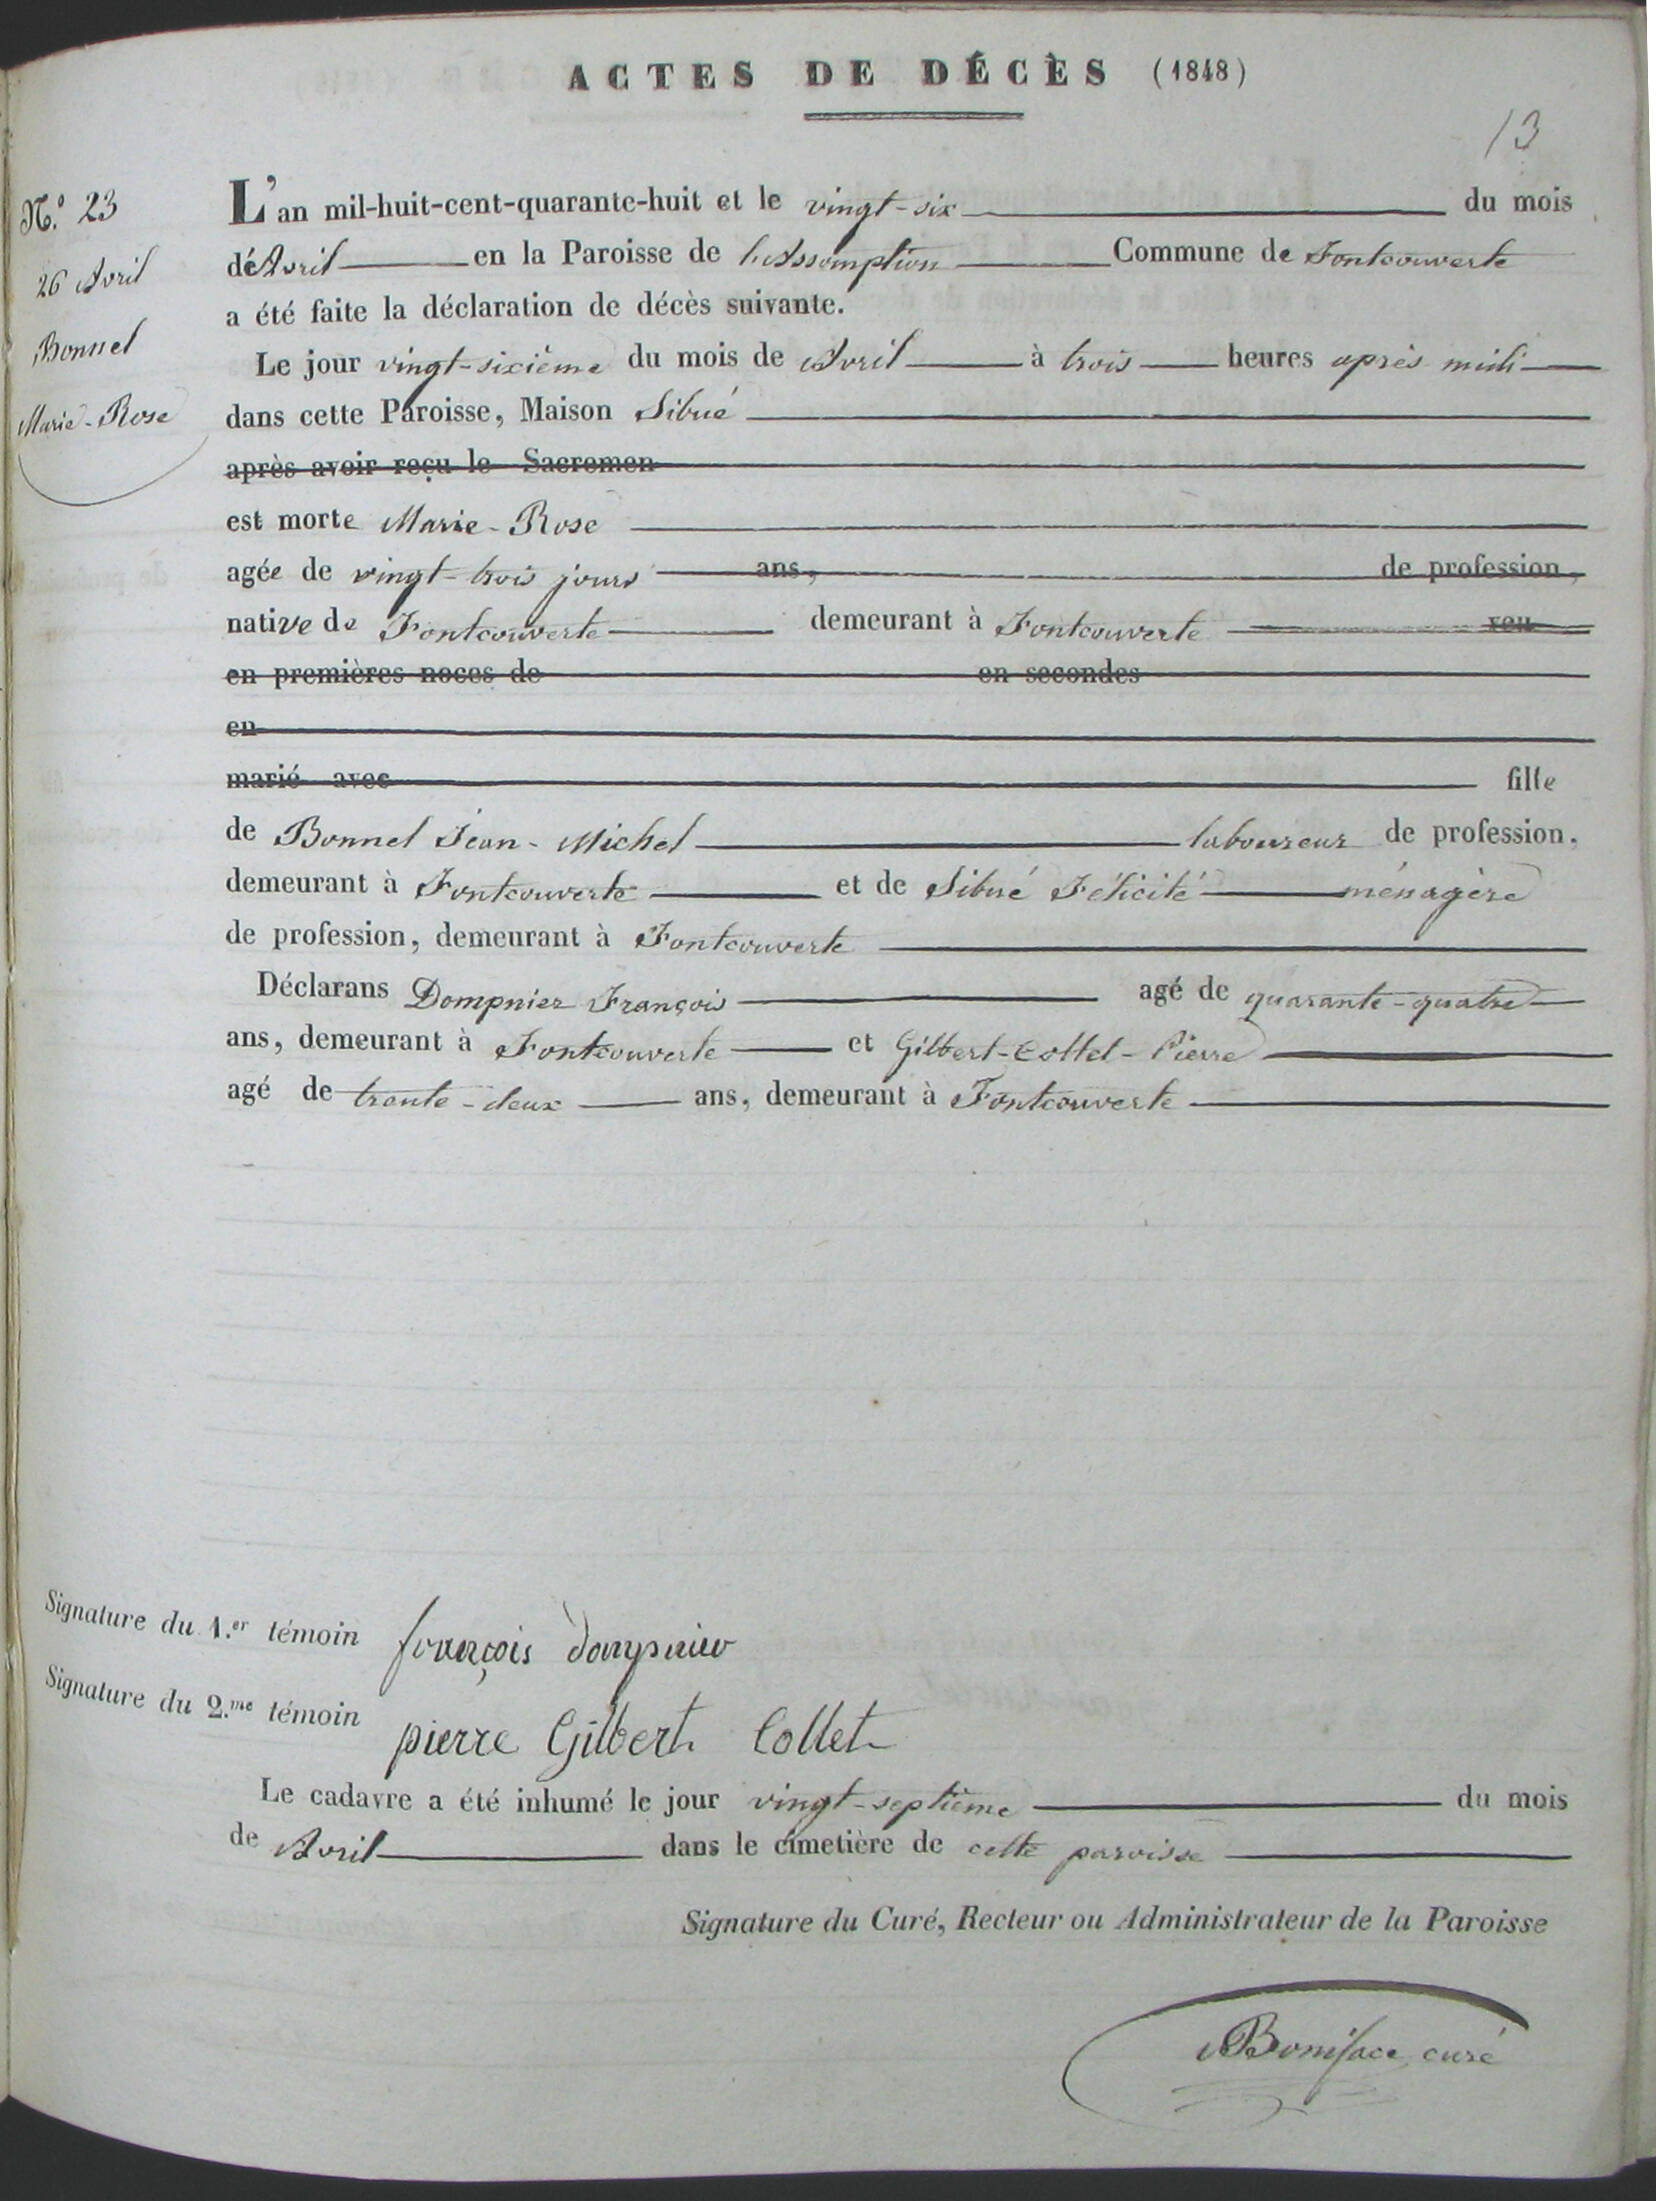 ACTES DE DÉCÈS (1848)
13
N.º 23
26 Avril
Bonnel
Marie-Rose
L'an mil-huit-cent-quarante-huit et le vingt-six du mois
d'Avril en la Paroisse de l'Assomption Commune de Fontcouverte
a été faite la déclaration de décès suivante.
Le jour vingt-sixième du mois de Avril à trois heures après midi
dans cette Paroisse, Maison Sibué
après avoir reçu le Sacremen
est morte Marie-Rose
agée de vingt-trois jours ans, de profession,
native de Fontcouverte demeurant à Fontcouverte veu
en premières noces de en secondes
en
marié avec fille
de Bonnel Jean-Michel laboureur de profession,
demeurant à Fontcouverte et de Sibué Félicité ménagère
de profession, demeurant à Fontcouverte
Déclarans Dompnier François agé de quarante-quatre
ans, demeurant à Fontcouverte et Gilbert-Collet-Pierre
agé de trente-deux ans, demeurant à Fontcouverte
Signature du 1.er témoin françois dompnier
Signature du 2.me témoin pierre Gilbert Collet
Le cadavre a été inhumé le jour vingt-septième du mois
de Avril dans le cimetière de cette paroisse
Signature du Curé, Recteur ou Administrateur de la Paroisse
Boniface curé